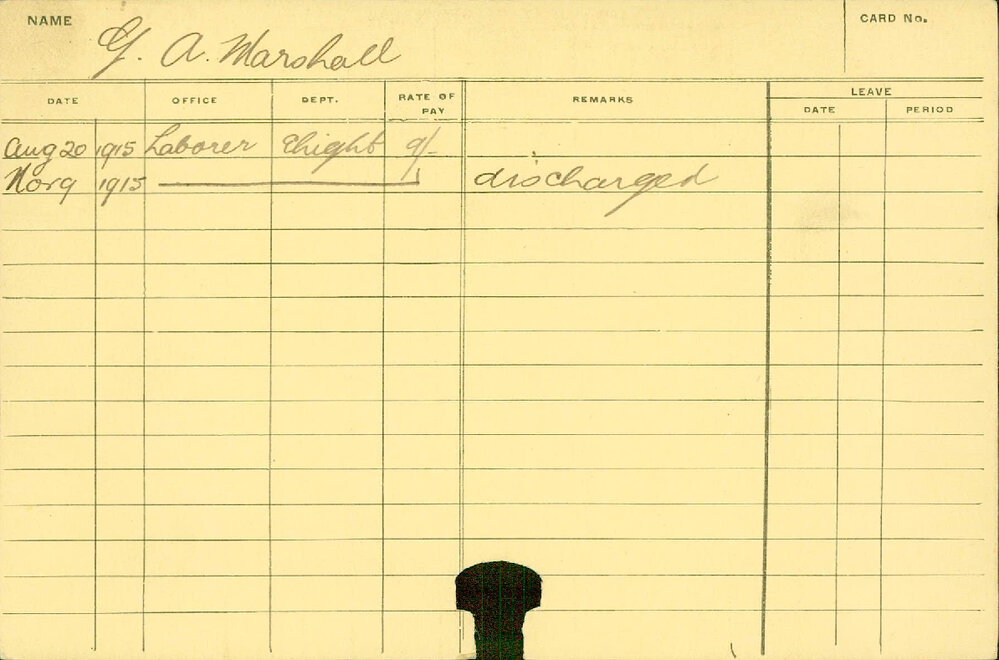 NAME
G. A. Marshall
CARD No.
DATE OFFICE DEPT. RATE OF PAY REMARKS LEAVE
DATE PERIOD
Aug 20 1915 Laborer Elight 9/-
Nov 9 1915 discharged